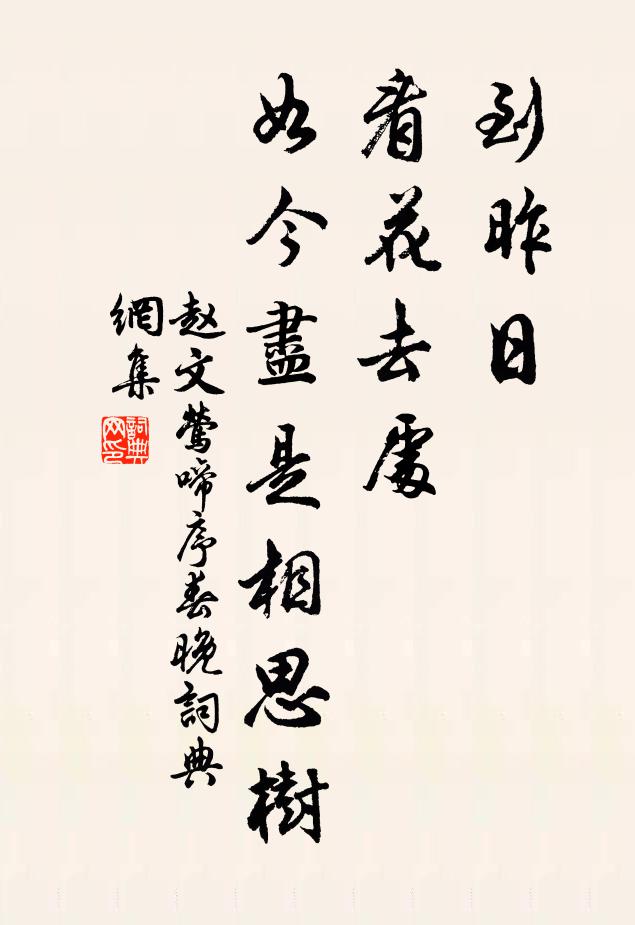 到昨日
看花去處
如今盡是相思樹
赵文鶯啼序春晚詞典
網集
詞典
网印